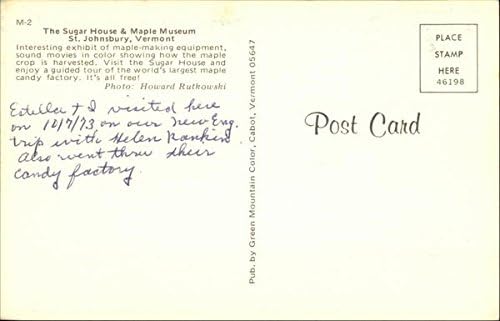 M-2
The Sugar House & Maple Museum
St. Johnsbury, Vermont
Interesting exhibit of maple-making equipment,
sound movies in color showing how the maple
crop is harvested. Visit the Sugar House and
enjoy a guided tour of the world's largest maple
candy factory. It's all free!
Photo: Howard Rutkowski
Estella & I visited here
on 10/7/73 on our New Eng.
trip with Helen Rankin.
Also went thru their
candy factory.
Pub. by Green Mountain Color, Cabot, Vermont 05647
PLACE
STAMP
HERE
46198
Post Card